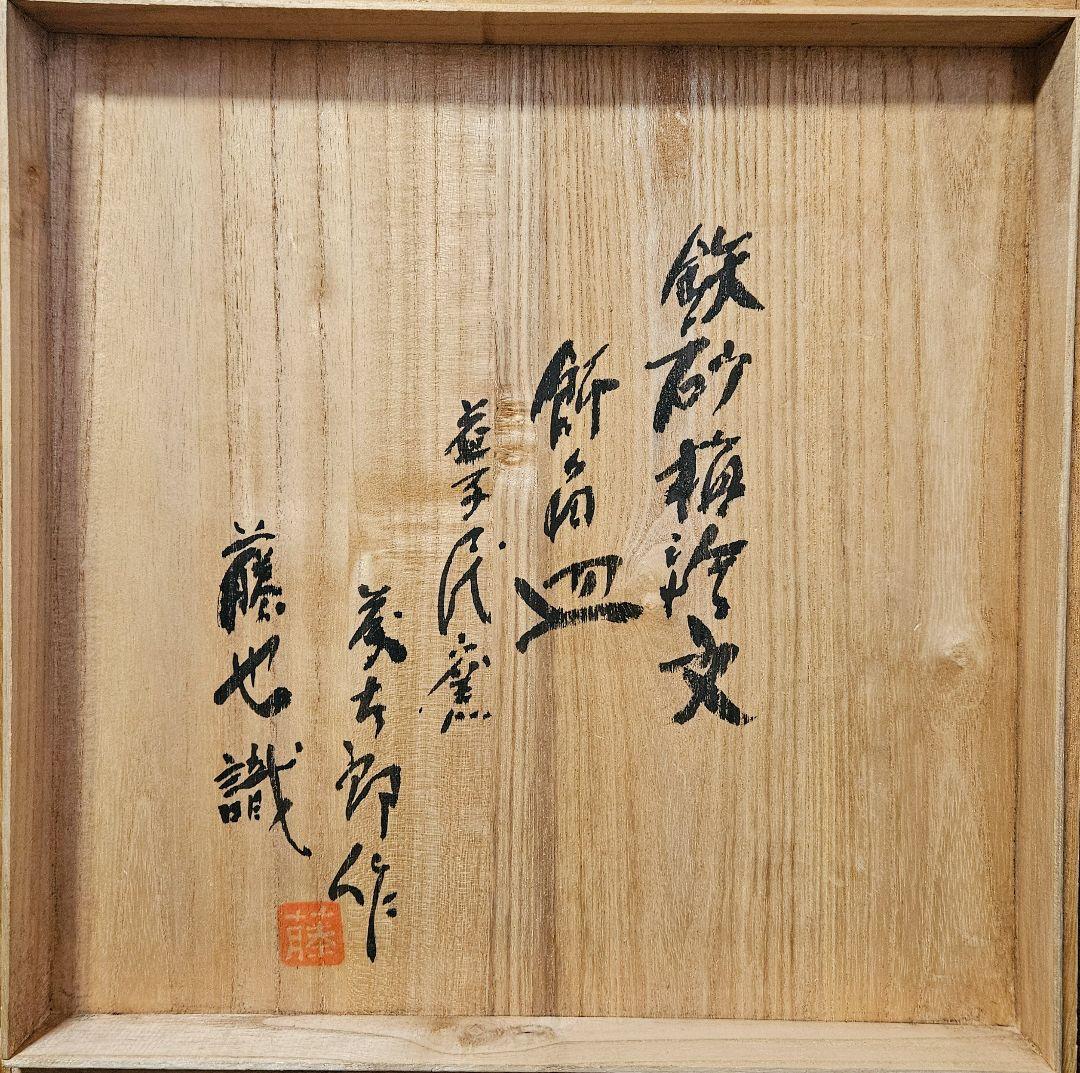 鉄砂梅文
飾角皿
益子民窯
藤太郎作
藤也識
藤